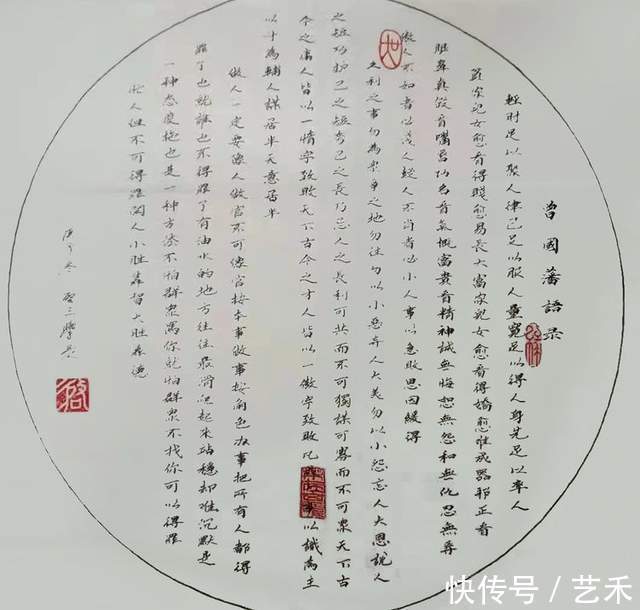 曾國藩語录
輕財足以聚人律己足以服人量寬足以得人身先足以率人
窮家兒女愈看得賤愈易長大富家兒女愈看得嬌愈难成器邪正看
眼鼻真假看嘴唇功名看氣概富貴看精神誠無悔恕無怨和無仇忍無辱
傲人不如者必淺人不肖者必小人事以急敗思因緩得
久利之事勿為眾爭之地勿往勿以小惡弃人大美勿以小怨忘人大恩說人
之短乃护己之短夸己之長乃忌人之長利可共而不可獨謀可寡而不可眾天下古
今之庸人皆以一惰字致敗天下古今之才人皆以一傲字致敗凡以識為主
以才為輔人謀居半天意居半
做人一定要像人做官不可像官按本事做事按角色办事把所有人都得
罪了也就誰也不得罪了有油水的地方往往最滑爬起來站穩却难沉默是
一种态度拖也是一种方法不怕群众骂你就怕群众不找你可以得罪
忙人但不可得罪闲人小胜靠智大胜靠德
庚子冬
快传号/艺禾